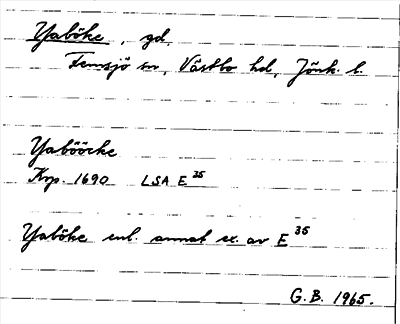 Yaböke, gd,
Femsjö sn, Västbo hd, Jönk. l.
Yabööcke
Krp. 1690 LSA E 35
Yaböke enl. annat ex. av E 35
G.B. 1965.